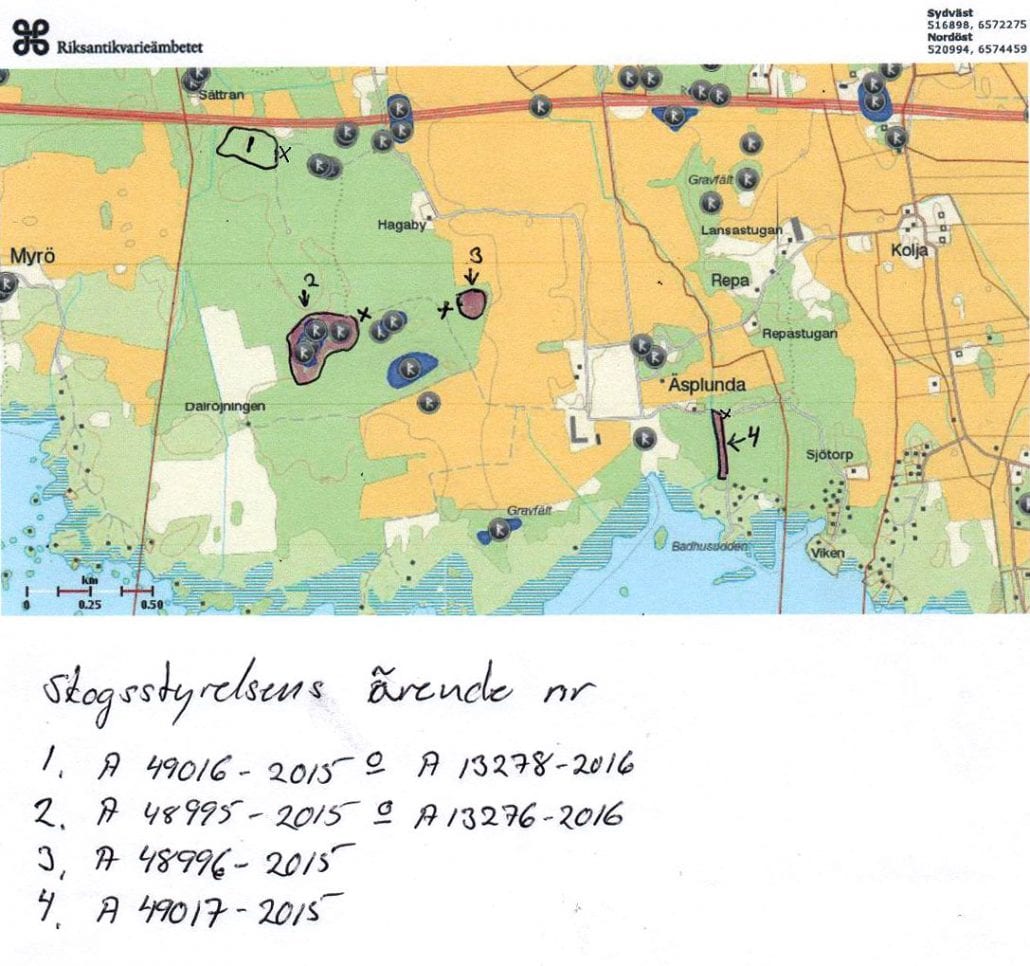 Riksantikvarieämbetet
Sydväst
516898, 6572275
Nordöst
520994, 6574459
Sättran
1
x
Gravfält
Hagaby
Lansastugan
Kolja
Myrö
3
Repa
2
x
x
Repastugan
Äsplunda
Dalröjningen
x
4
Sjötorp
Gravfält
Badhusudden
Viken
km
0 0.25 0.50
Skogsstyrelsens ärende nr
1. A 49016-2015 o A 13278-2016
2. A 48995-2015 o A 13276-2016
3. A 48996-2015
4. A 49017-2015